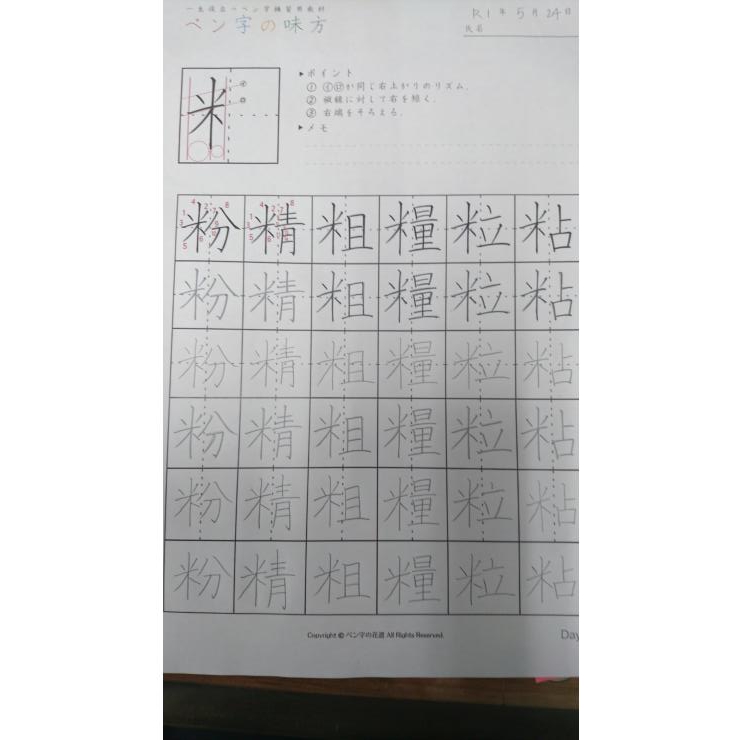 一生役立つペン字練習用教材
ペン字の味方
R1年 5月24日
氏名
▶ポイント
① ㋑㋺が同じ右上がりのリズム。
② 縦線に対して右を短く。
③ 右端をそろえる。
▶メモ
米 ㋑
㋺
粉 精 粗 糧 粒 粘
粉 精 粗 糧 粒 粘
粉 精 粗 糧 粒 粘
粉 精 粗 糧 粒 粘
粉 精 粗 糧 粒 粘
粉 精 粗 糧 粒 粘
Copyright © ペン字の花道 All Rights Reserved.
Day